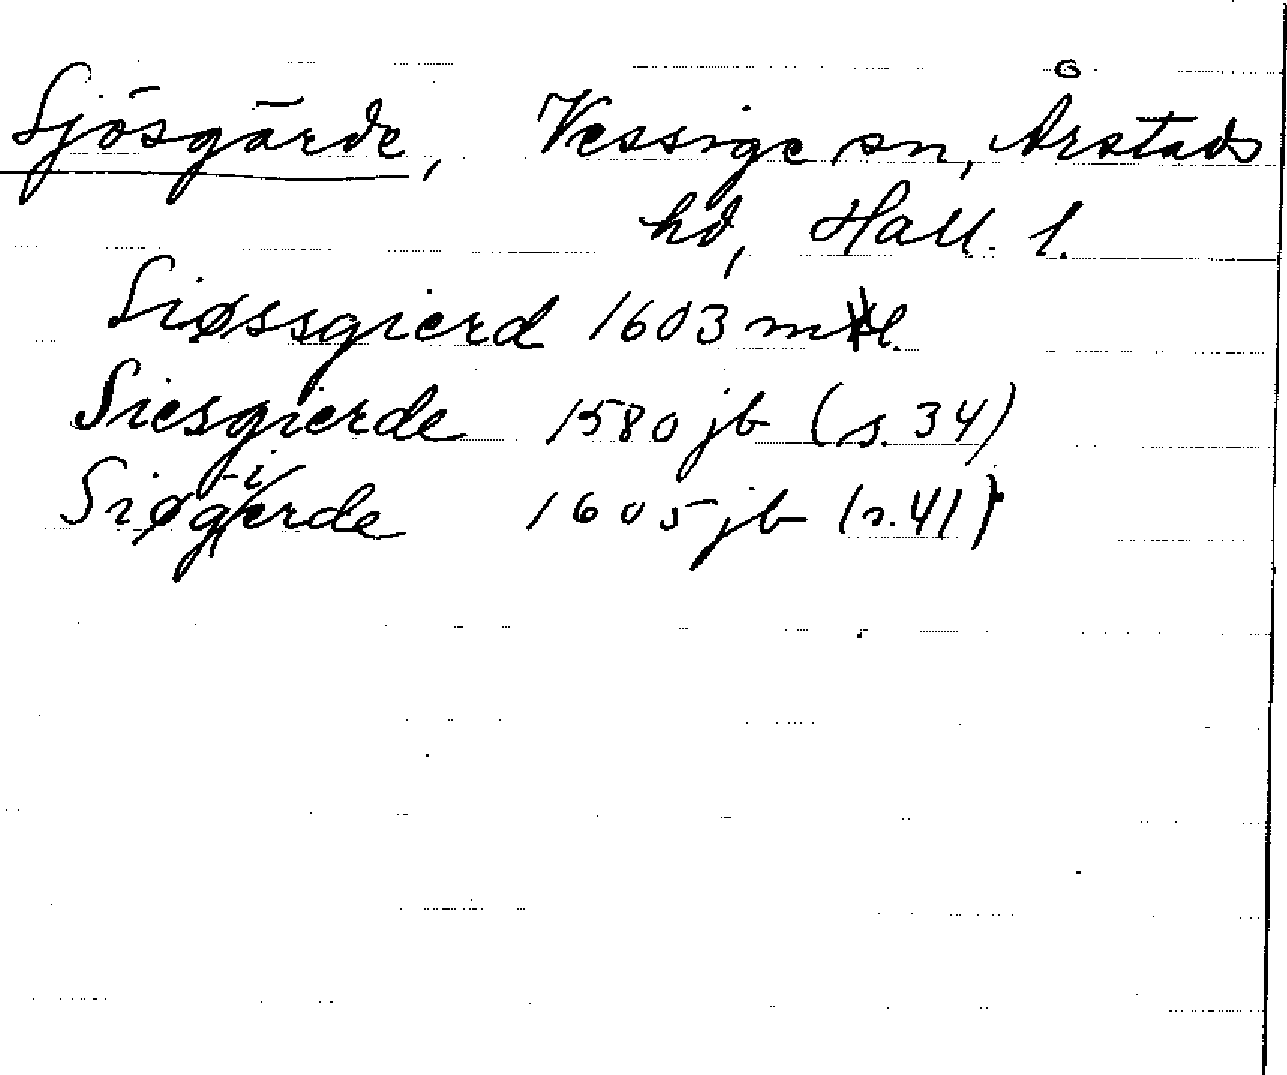 Sjösgärde, Vessige sn, Årstads
hd, Hall. l.
Siøssgierd 1603 mtl.
Siesgierde 1580 jb (s. 34)
Siøgierde 1605 jb (s. 41)